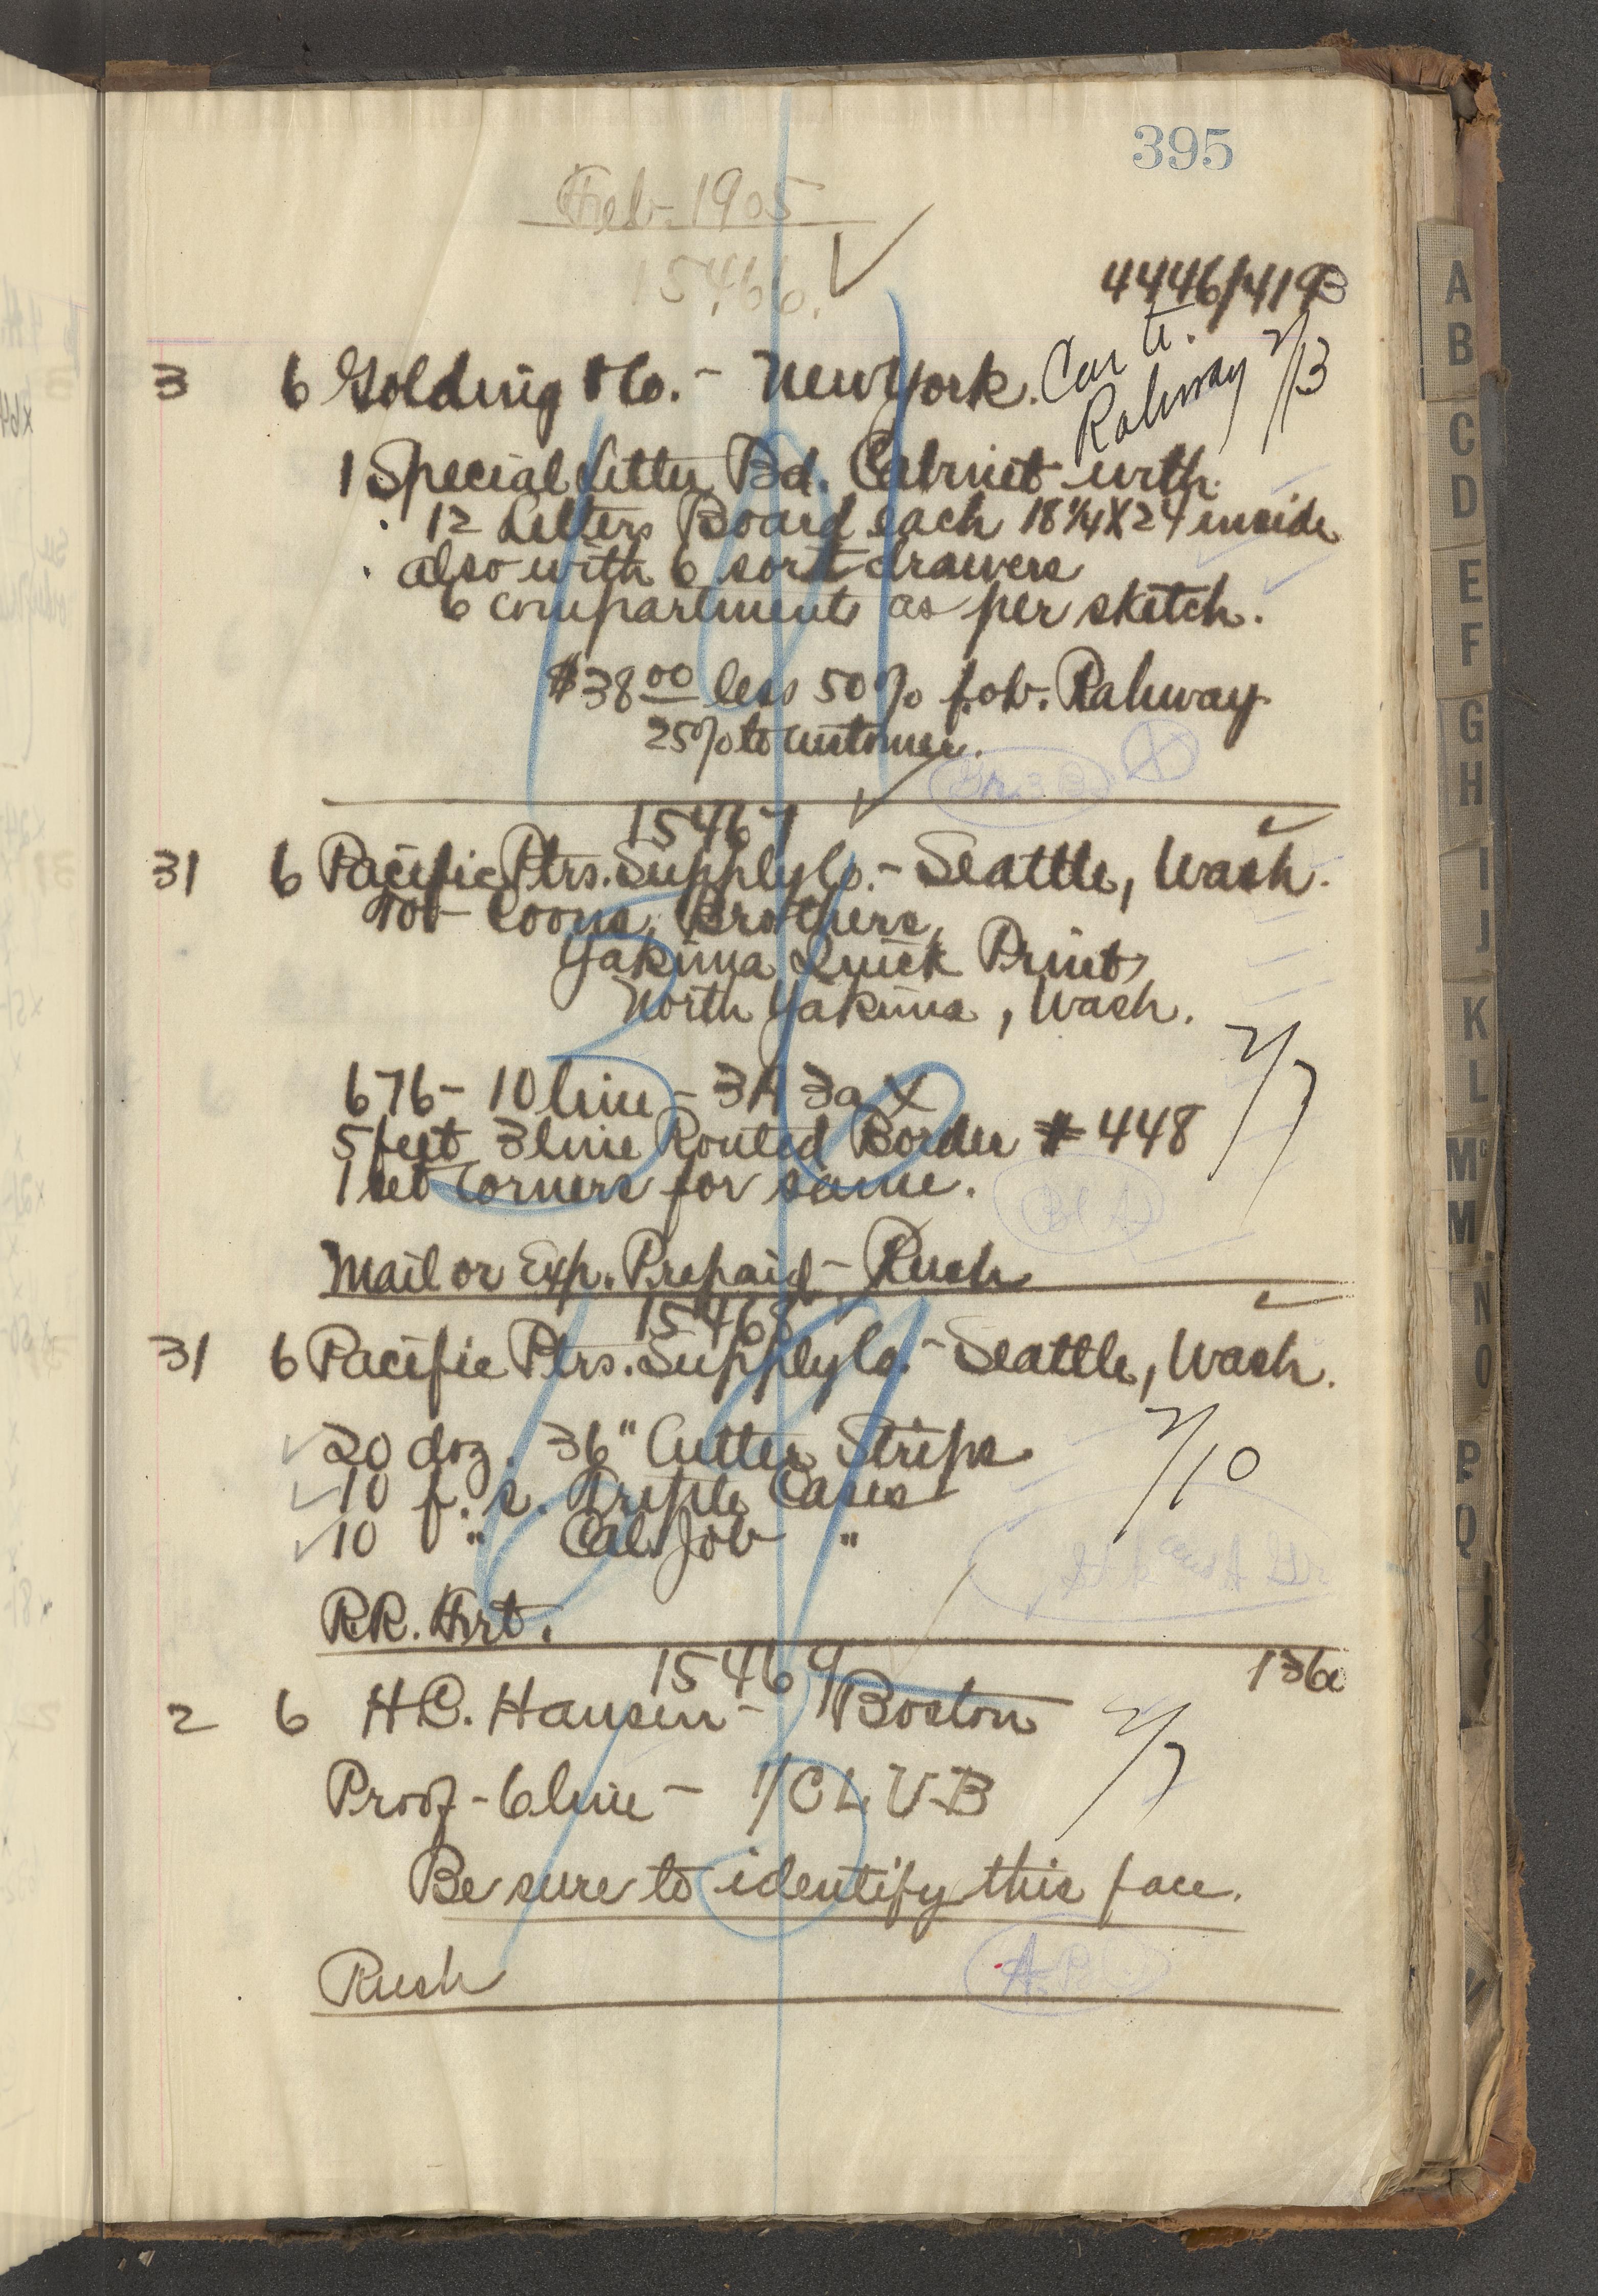 395
Feb- 1905
15466.
4446/4193
3 6 Golding & Co. - New York.
Rahway 2/13
1 Special Letter Bd. Cabinet with
12 Letters Board each 18 1/4 X 24 inside
also with 6 sort drawers
6 compartments as per sketch.
$38 00 less 50% f.o.b. Rahway
25% to customer.
15467
31 6 Pacific Ptrs. Supply Co. - Seattle, Wash.
for Coons Brothers,
Yakima Quick Print,
North Yakima, Wash.
2/7
676 - 10 line - 3A 3a X
5 feet 3 line Routed Border # 448
1 set Corners for same.
Mail or Exp. Prepaid - Rush
15468
31 6 Pacific Ptrs. Supply Co. - Seattle, Wash.
20 doz. 36" Cutter Strips
2/10
10 f. s. Triple Cases
10 " " Cal. Job "
R.R. Frt.
15469
136
2 6 H.C. Hansen - Boston
2/7
Proof - 6 line - 1/CLUB
Be sure to identify this face.
Rush
A
B
C
D
E
F
G
H
I
J
K
L
Mc
M
N
O
P
Q